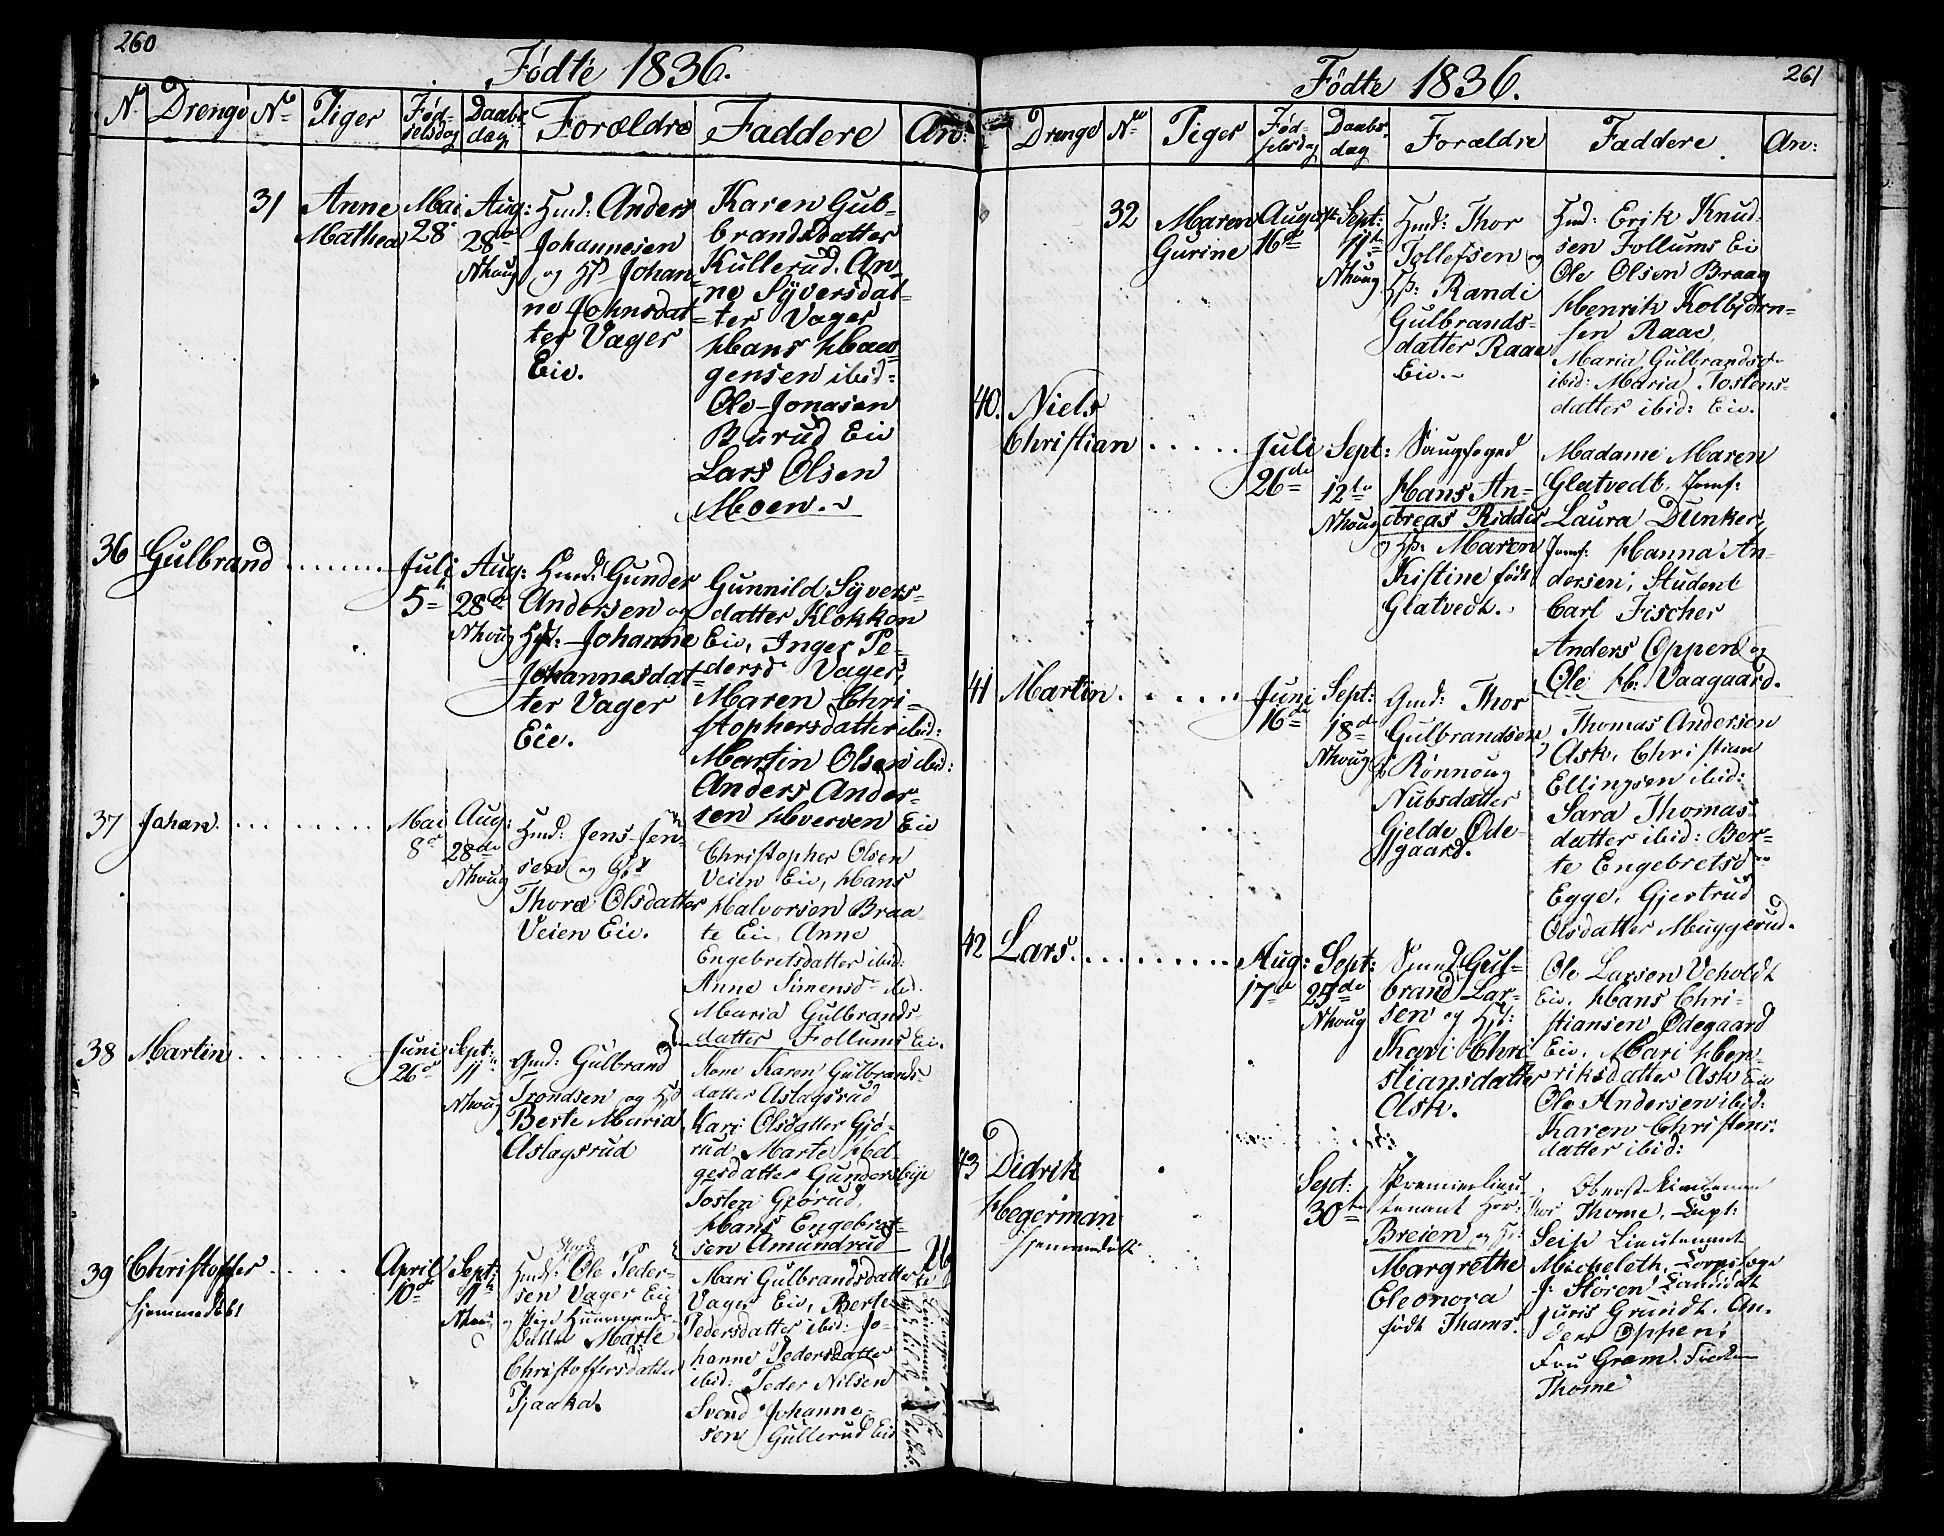 260
Fødte 1836.
No Drenge No Piger Fød-
selsdag Daabs
dag Forældre Faddere An:
31 Anne
Mathea
Mai
28
Aug:
28de
Nhoug
Hmd: Anders
Johannesen
og Hst Johan-
ne Johnsdat-
ter Vager
Eie.
Karen Gul-
brandsdatter
Kullerud. An-
ne Syversdat-
ter Vager
Hans Haa-
gensen ibid:
Ole Jonasen
Burud Eie
Lars Olsen
Moen.
36 Gulbrand
Juli
5
Aug:
28de
Nhoug
Hmd: Gunder
Andersen og
Hst: Johanne
Johannesdat-
ter Vager
Eie.
Gunnild Syvers-
datter Klokken
Eie, Inger Pe-
dersd Vager,
Maren Chri-
stophersdatter ibid:
Martin Olsen ibid:
Anders Ander-
sen Hverven Eie
37 Johan.
Mai
8
Aug:
28de
Nhoug
Hmd: Jens Jen-
sen og Hst
Thore Olsdatter
Veien Eie.
Christopher Olsen
Veien Eie, Hans
Halvorsen Braa-
te Eie, Anne
Engebretsdatter ibid:
Anne Simensd ibid.
Maria Gulbrands-
datter Follums Eie.
38 Martin
Juni
26
Sept:
11
Nhoug
Gmd: Gulbrand
Trondsen og Hst
Berte Maria
Aslagsrud
Kone Karen Gulbrands-
datter Aslagsrud
Kari Olsdatter Gjø-
rud, Marte Hel-
gesdatter Gundersbye
Tosten Gjørud,
Hans Engebret-
sen Amundrud
39 Christoffer
hjemmedøbt
April
10
Sept:
11
Nhoug
Hmds: Ole Peder-
sen Vager Eie
og Pige
datter Marte
Christoffersdatter
Pjaaka.
Mari Gulbrandsdatter
Vager Eie, Berte
Pedersdatter ibid: Jo-
hanne Pedersdatter
ibid: Peder Nilsen
Svend Johanne-
sen Gullerud Eie
Uæ
261
Fødte 1836.
Drenge No Piger Fød-
selsdag Daabs
dag Forældre Faddere An:
32 Maren
Gurine
August
16de
Sept:
11te
Nhoug
Hmd: Thor
Tollefsen og
Hst: Randi
Gulbrands-
datter Raae
Eie.
Hmd: Erik Knud-
sen Follums Ei
Ole Olsen Braag
Henrik Kolbjørn-
sen Raae,
Maria Gulbrandsd
ibid: Maria Tostens-
datter ibid: Eie.
40. Niels
Christian
Juli
26de
Sept:
12te
Nhoug
Saugfoged
Hans An-
dreas Ridder
og Hst: Maren
Kistine født
Glatvedt.
Madame Maren
Glatvedt, Jomf:
Laura Dunker,
Jomf: Hanna An-
dersen; Student
Carl Fischer
Anders Oppen og
Ole H: Vaagaard.
41 Martin.
Juni
16de
Sept:
18de
Nhoug
Gmd: Thor
Gulbrandsen
Rønnoug
Nubsdatter
Gjelde Øde-
gaard.
Thomas Andersen
Ask, Christian
Ellingsen ibid:
Sara Thomas-
datter ibid: Ber-
te Engebretsd
Egge, Gjertrud
Olsdatter Muggerud.
42 Lars.
Aug:
17de
Sept:
25de
Nhoug
Smed Gul-
brand Lar-
sen og Hst:
Kari Chri-
stiansdatter
Ask.
Ole Larsen Veholdt
Eie, Hans Chri-
stiansen Ødegaard
Eie, Mari Hen-
riksdatter Ask Eie
Ole Andersen ibid:
Karen Christens
datter ibid:
43 Didrik
Hegerman
hjemmedøbt
Sept:
30te
Premierlieu-
tenant
Breien og
Margrethe
Eleonora
født Thams.
Oberst
Thome, Capt:
Seip Lieutenant
Micheleth,
J. Støren Candidat
juris Grundt. An-
ders Oppen;
Fru Gram.
Thome